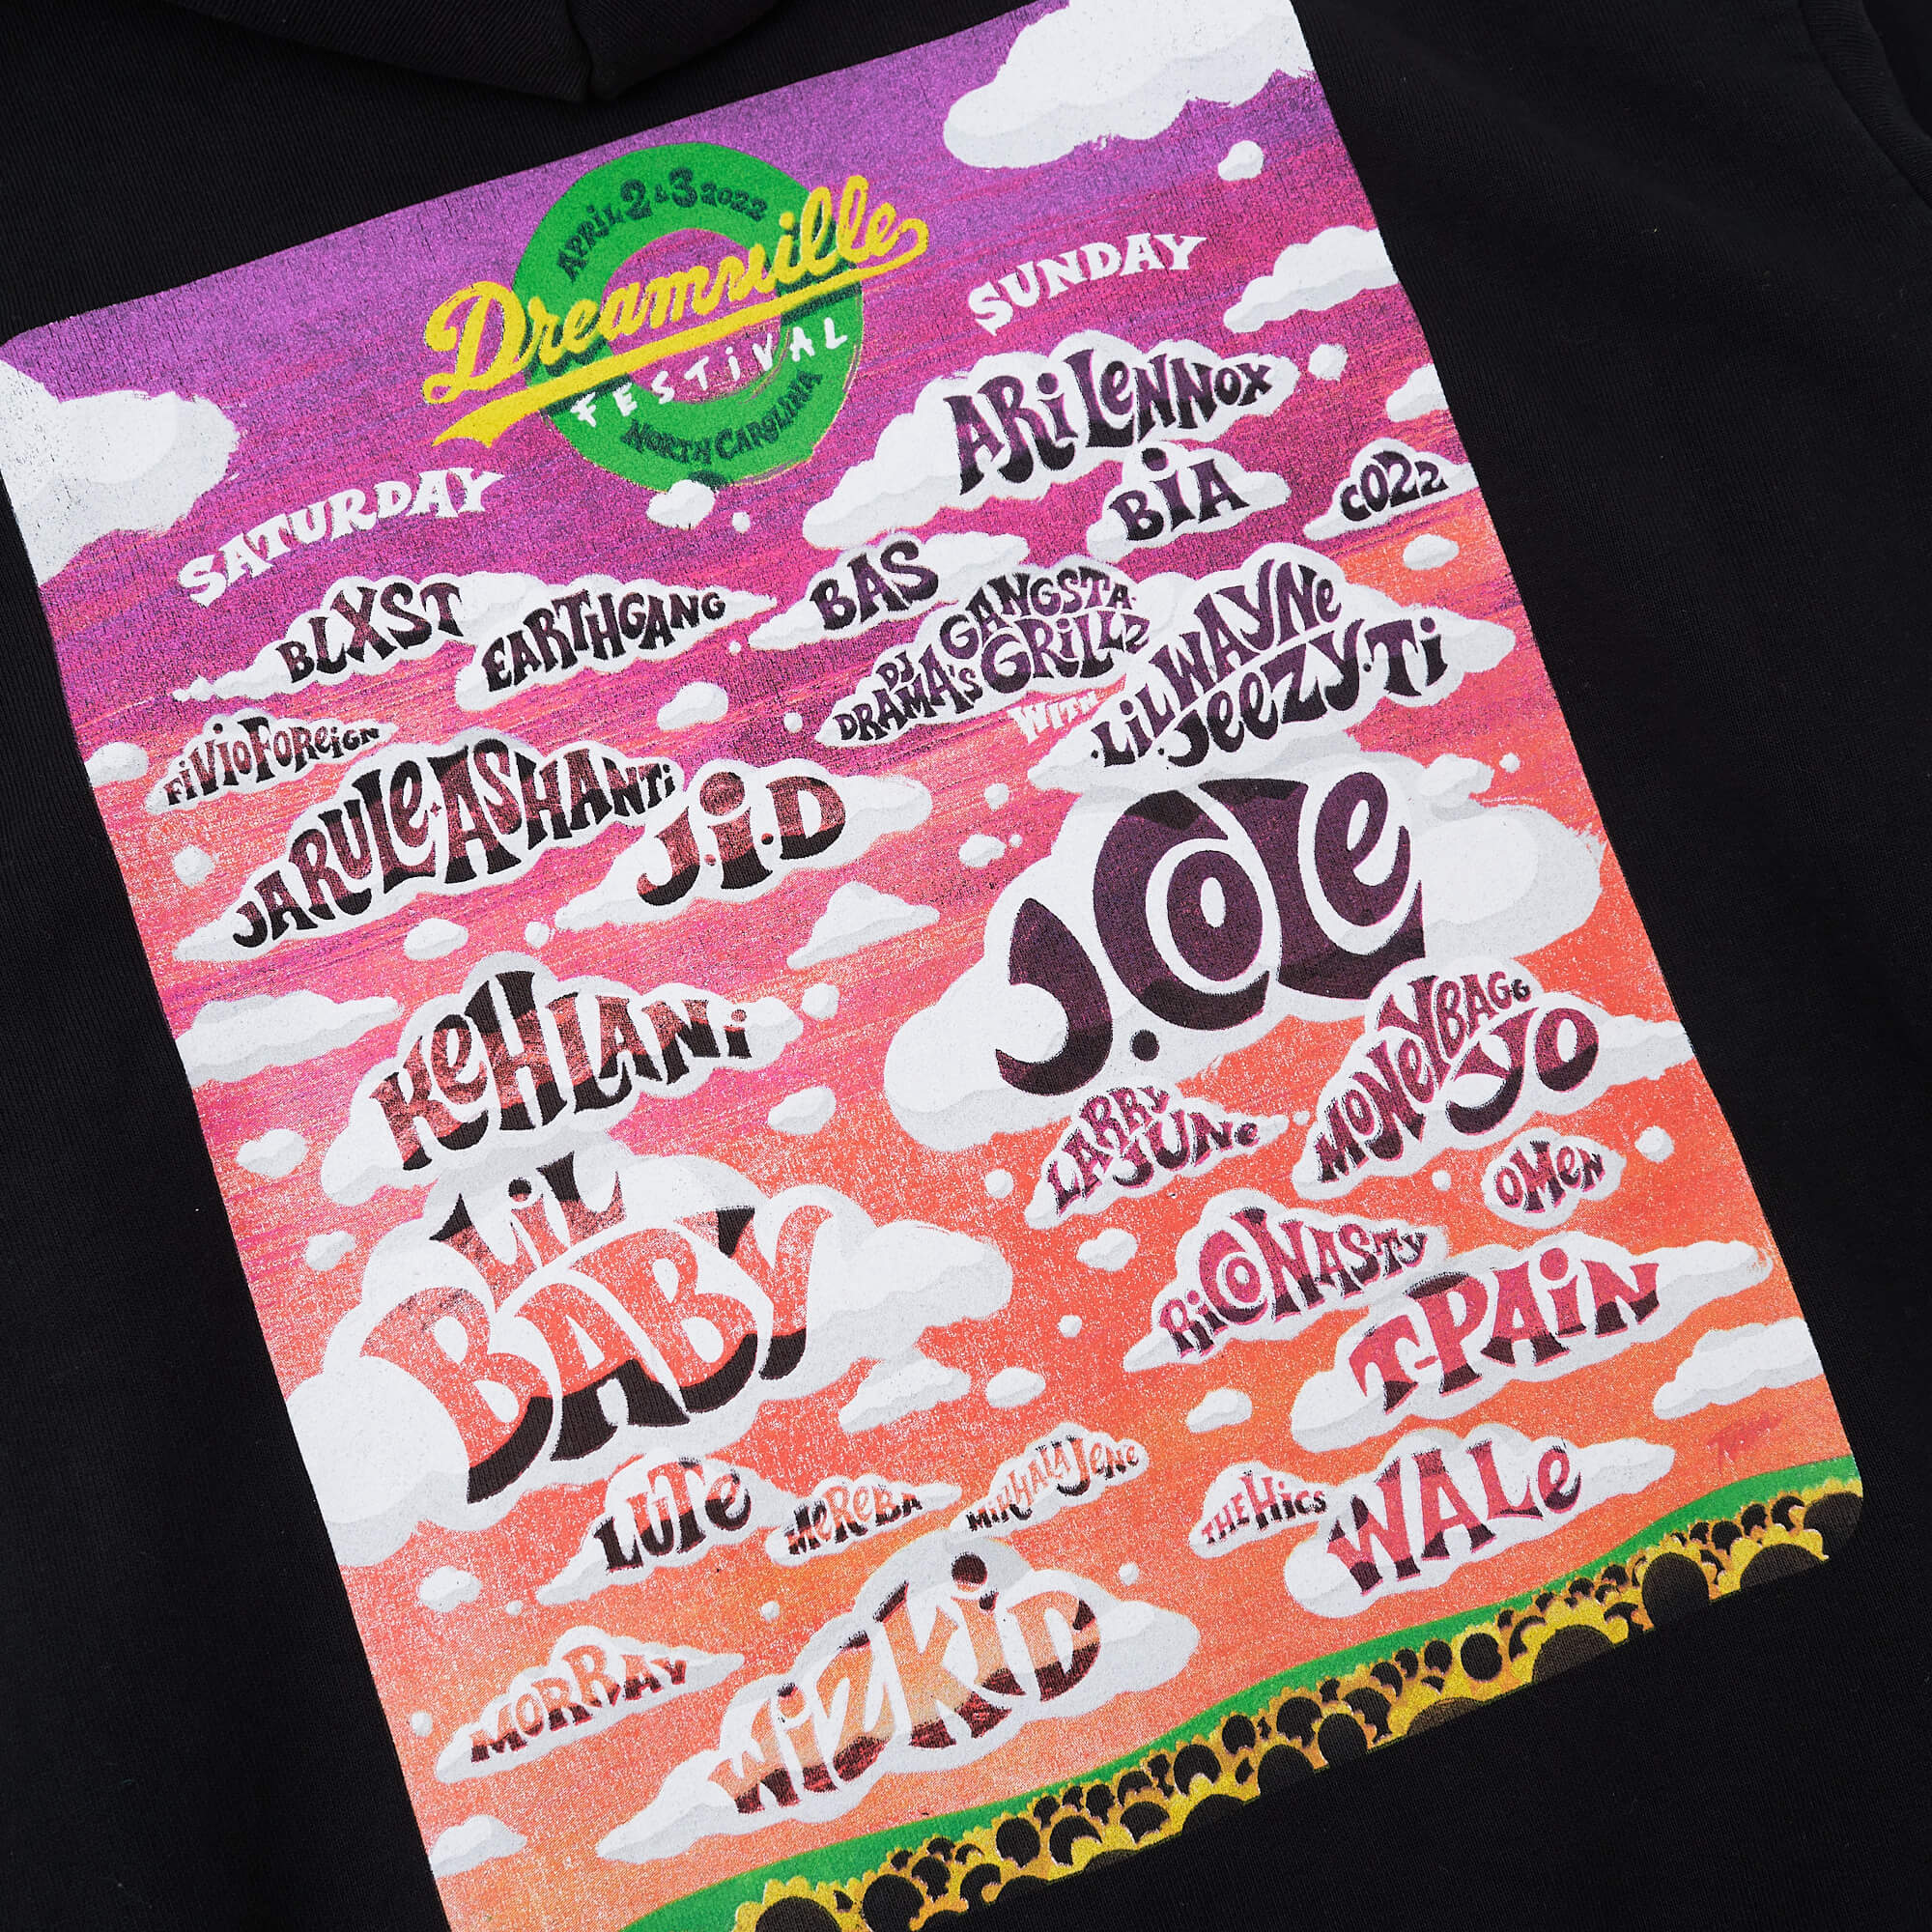 APRIL 2 & 3 2022
Dreamville
FESTIVAL
NORTH CAROLINA
SATURDAY
BLXST
EARTHGANG
FiViO FOReiGN
JA RULe + ASHANTi
J.i.D
KeHLANi
LiL
BABY
LUTe
MeReBA
MiRHALA JeNe
MORRAY
WiZKiD
SUNDAY
ARi LeNNOX
BiA
CO22
BAS
DJ
DRAMA'S
GANGSTA
GRiLLZ
WITH
·LiL WAYNe
·JeeZY·Ti
J.COLe
LARRY
JUNe
MONeYBAGG
YO
OMeN
RiCO NASTY
T-PAiN
THE HiCS
WALe